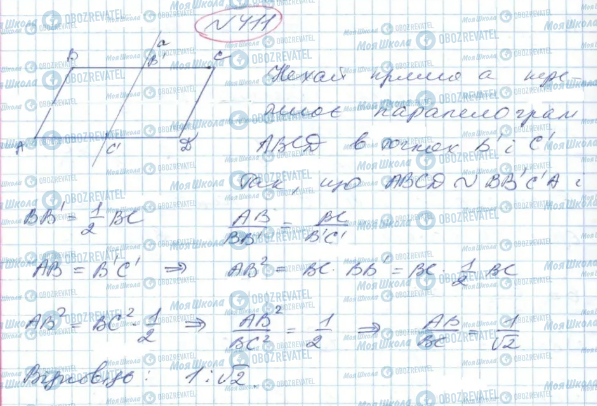 №411
a
B B' C
A C' D
Нехай пряма a пере-
тинає паралелограм
ABCD в точках B' і C'
Так, що ABCD ~ BB'C'A і
BB' = 1/2 BC AB/BB' = BC/B'C'
AB = B'C' ⇒ AB² = BC · BB' = BC · 1/2 BC
AB² = BC² · 1/2 ⇒ AB²/BC² = 1/2 ⇒ AB/BC = 1/√2
Відповідь: 1:√2.
Моя Школа OBOZREVATEL